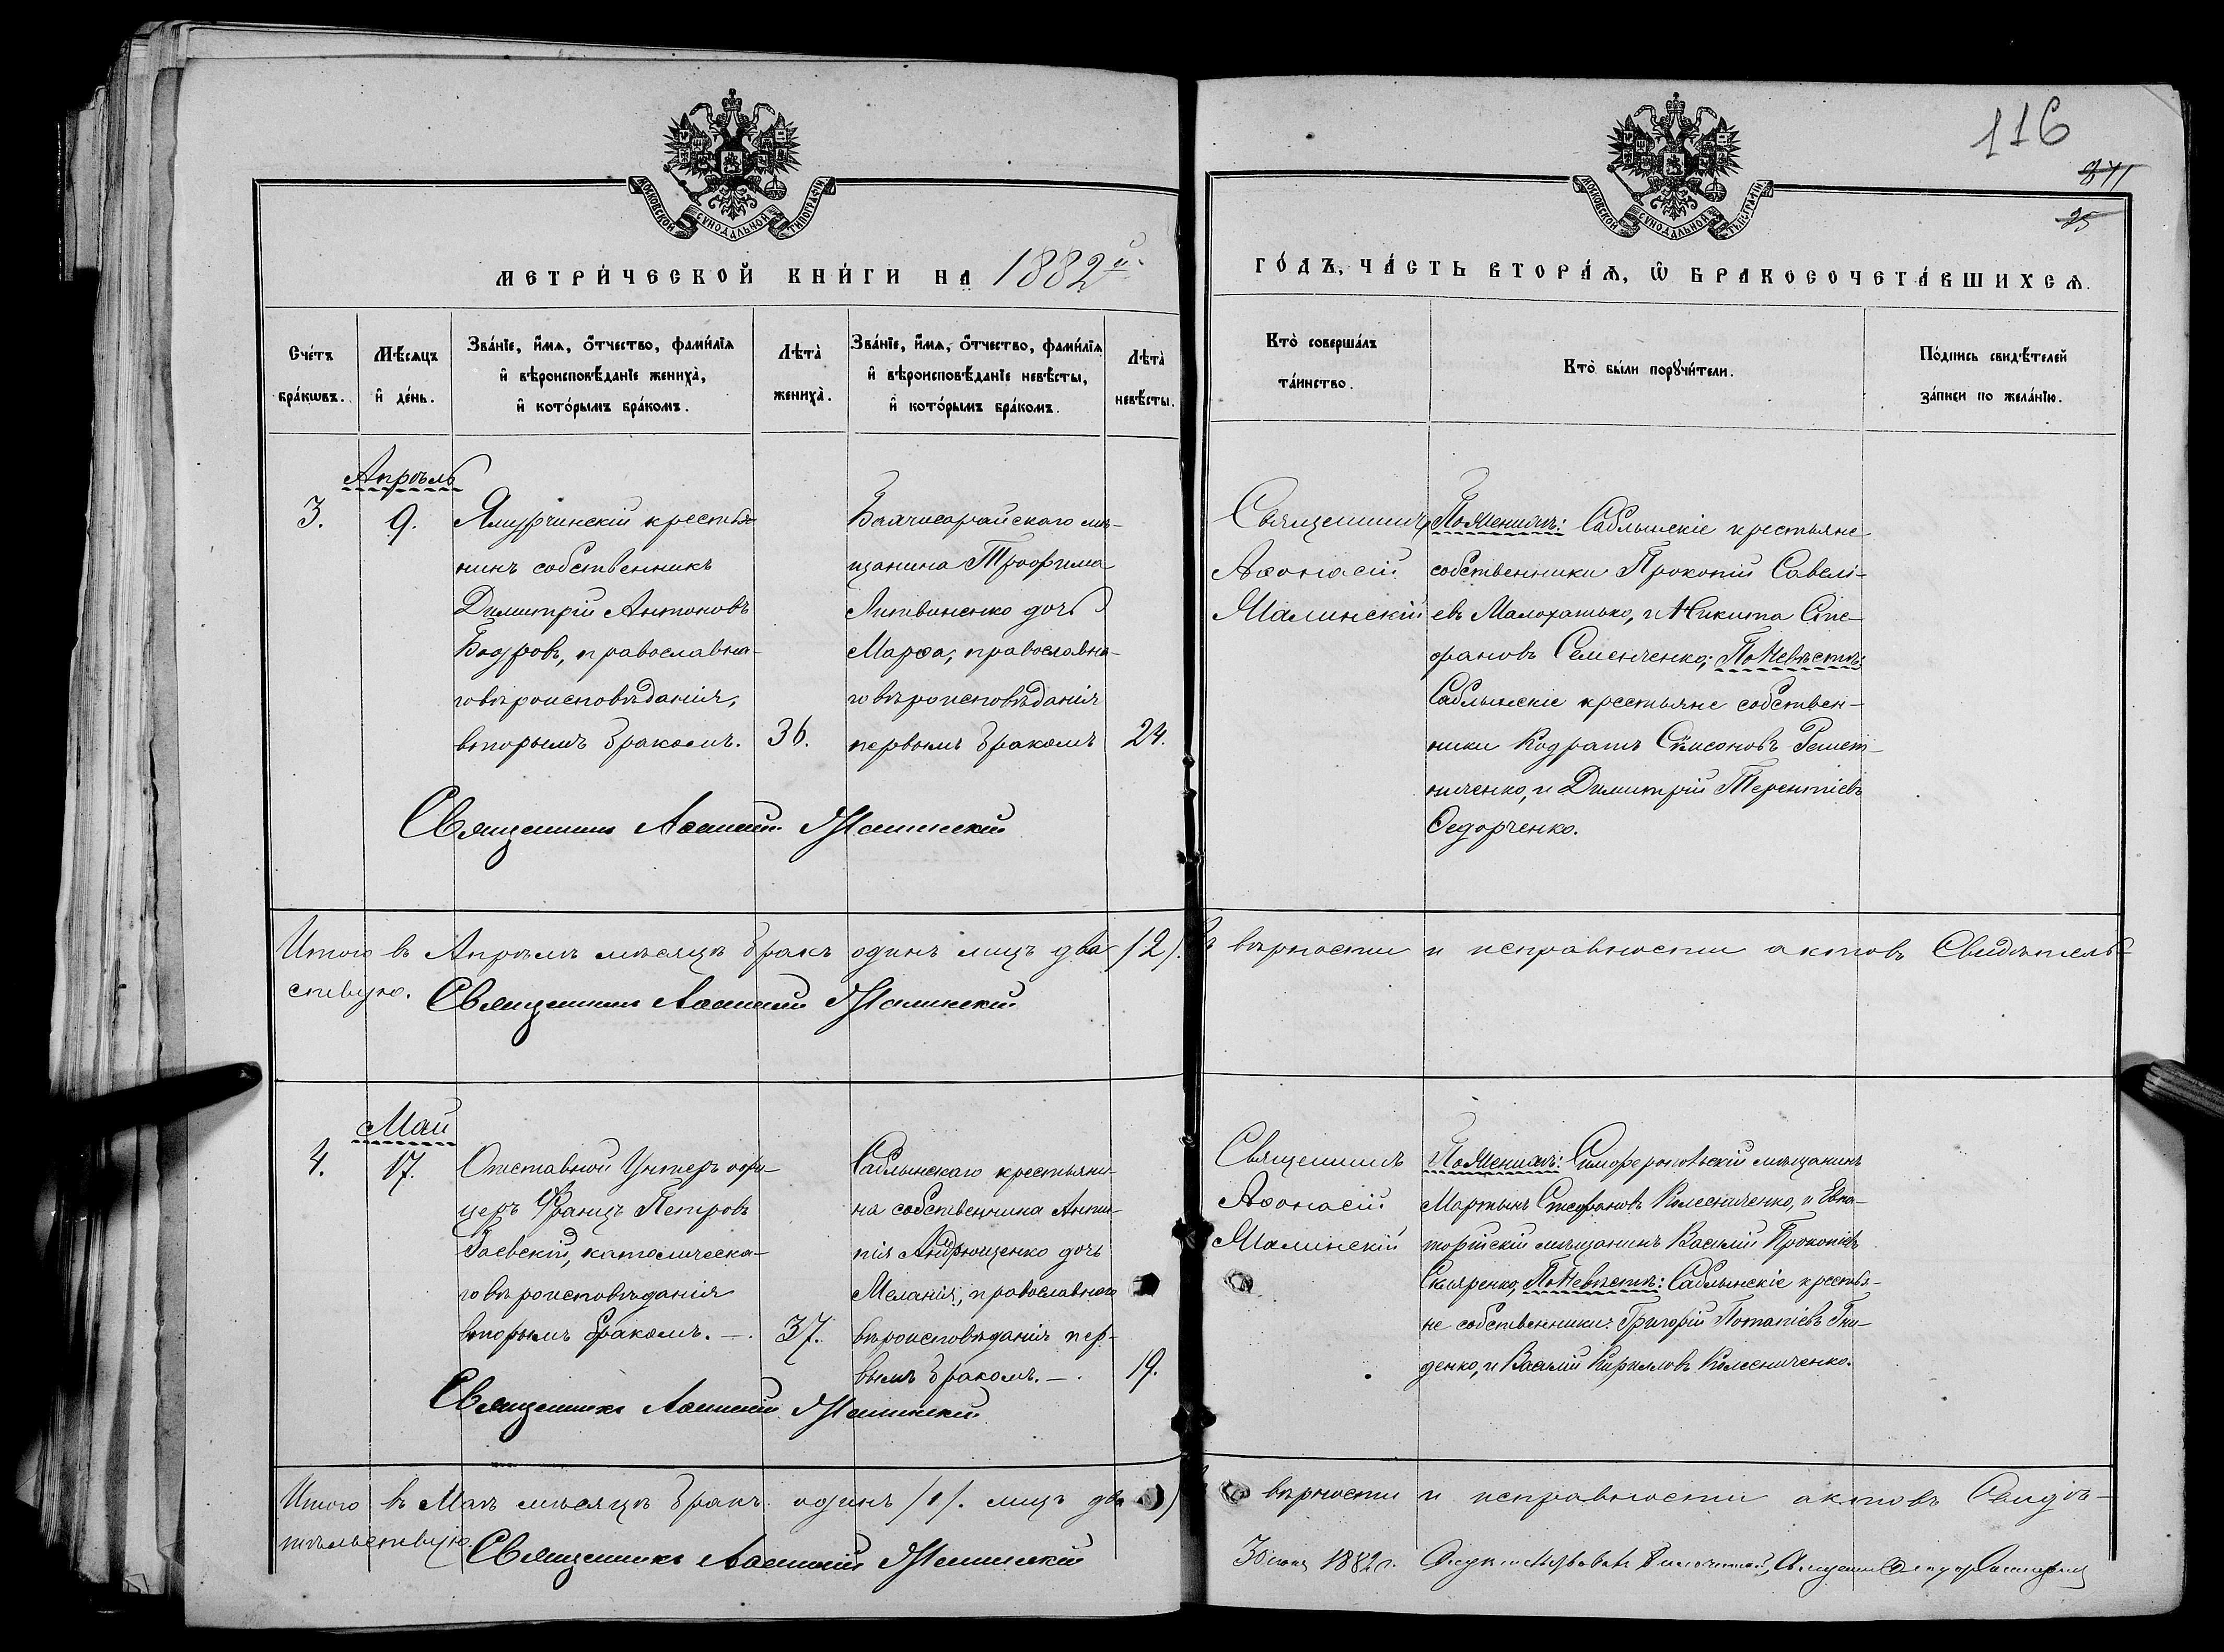 116
841
25
МОСКОВСКОЙ СѴНОДАЛЬНОЙ ТИПОГРАФІИ
МОСКОВСКОЙ СѴНОДАЛЬНОЙ ТИПОГРАФІИ
МЕТРИ́ЧЕСКОЙ КНИ́ГИ НА 1882й.
ГО́ДЪ, ЧА́СТЬ ВТОРА́Ѧ, Ѡ҆ БРАКОСОЧЕТА́ВШИХСѦ.
Сче́тъ бра́кѡвъ.
Мѣ́сяцъ и҆ де́нь.
Зва́нїе, и҆́мѧ, о҆́тчество, фами́лїѧ
и҆ вѣроисповѣ́данїе жениха̀,
и҆ кото́рымъ бра́комъ.
Лѣта̀ жениха̀.
Зва́нїе, и҆́мѧ, о҆́тчество, фами́лїѧ
и҆ вѣроисповѣ́данїе невѣ́сты,
и҆ кото́рымъ бра́комъ.
Лѣта̀ невѣ́сты.
Кто̀ соверша́лъ
та́инство.
Кто̀ бы́ли порꙋчи́тели.
По́дпись свидѣ́телей
за́писи по жела́нїю.
Апрѣль
3.
9.
Ялмурчинскій крестья
нинъ собственникъ
Димитрій Антоновъ
Бодровъ, православна-
го вѣроисповѣданія,
вторымъ бракомъ.
36.
Бахчисарайскаго мѣ-
щанина Трофима
Литвиненко дочь
Марѳа, православна-
го вѣроисповѣданія
первымъ бракомъ
24.
Священникъ
Аѳонасій
Малинскій
По Женихѣ: Саблынскіе крестьяне
собственники Прокопій Савелі-
евъ Малохатько, и Никита Сте-
фановъ Семенченко; По Невѣстѣ:
Саблынскіе крестьяне собствен-
ники Кодратъ Решет-
ниченко, и Димитрій Терентіевъ
Ѳедорченко.
Священникъ Аѳонасій Малинскій
Итого въ Апрѣлѣ мѣсяцѣ бракъ одинъ лицъ два (2). въ вѣрности и исправности актовъ Свидѣтель-
ствую. Священникъ Аѳонасій Малинскій
Май
4.
17.
Отставной Унтеръ офи-
церъ Францъ Петровъ
Гаевскій, католическа-
го вѣроисповѣданія
вторымъ бракомъ. —.
37.
Саблынскаго крестьяни-
на собственника Анти-
пія Андрющенко дочь
Меланія, православнаго
вѣроисповѣданія пер-
вымъ бракомъ. —.
19.
Священникъ
Аѳонасій
Малинскій
По Женихѣ: Симферопольскій мѣщанинъ
Мартынъ Стефановъ Колесниченко, и Евпа-
торійскій мѣщанинъ Василій Прокопіевъ
Скляренко, По Невѣстѣ: Саблынскіе крестья-
не собственники: Григорій Потапіевъ Гни-
денко, и Василій Кирилловъ Колесниченко.
Священникъ Аѳонасій Малинскій
Итого въ Маѣ мѣсяцѣ бракъ одинъ /1/. лицъ два въ вѣрности и исправности актовъ Свидѣ-
тельствую. Священникъ Аѳонасій Малинскій
1882 г.